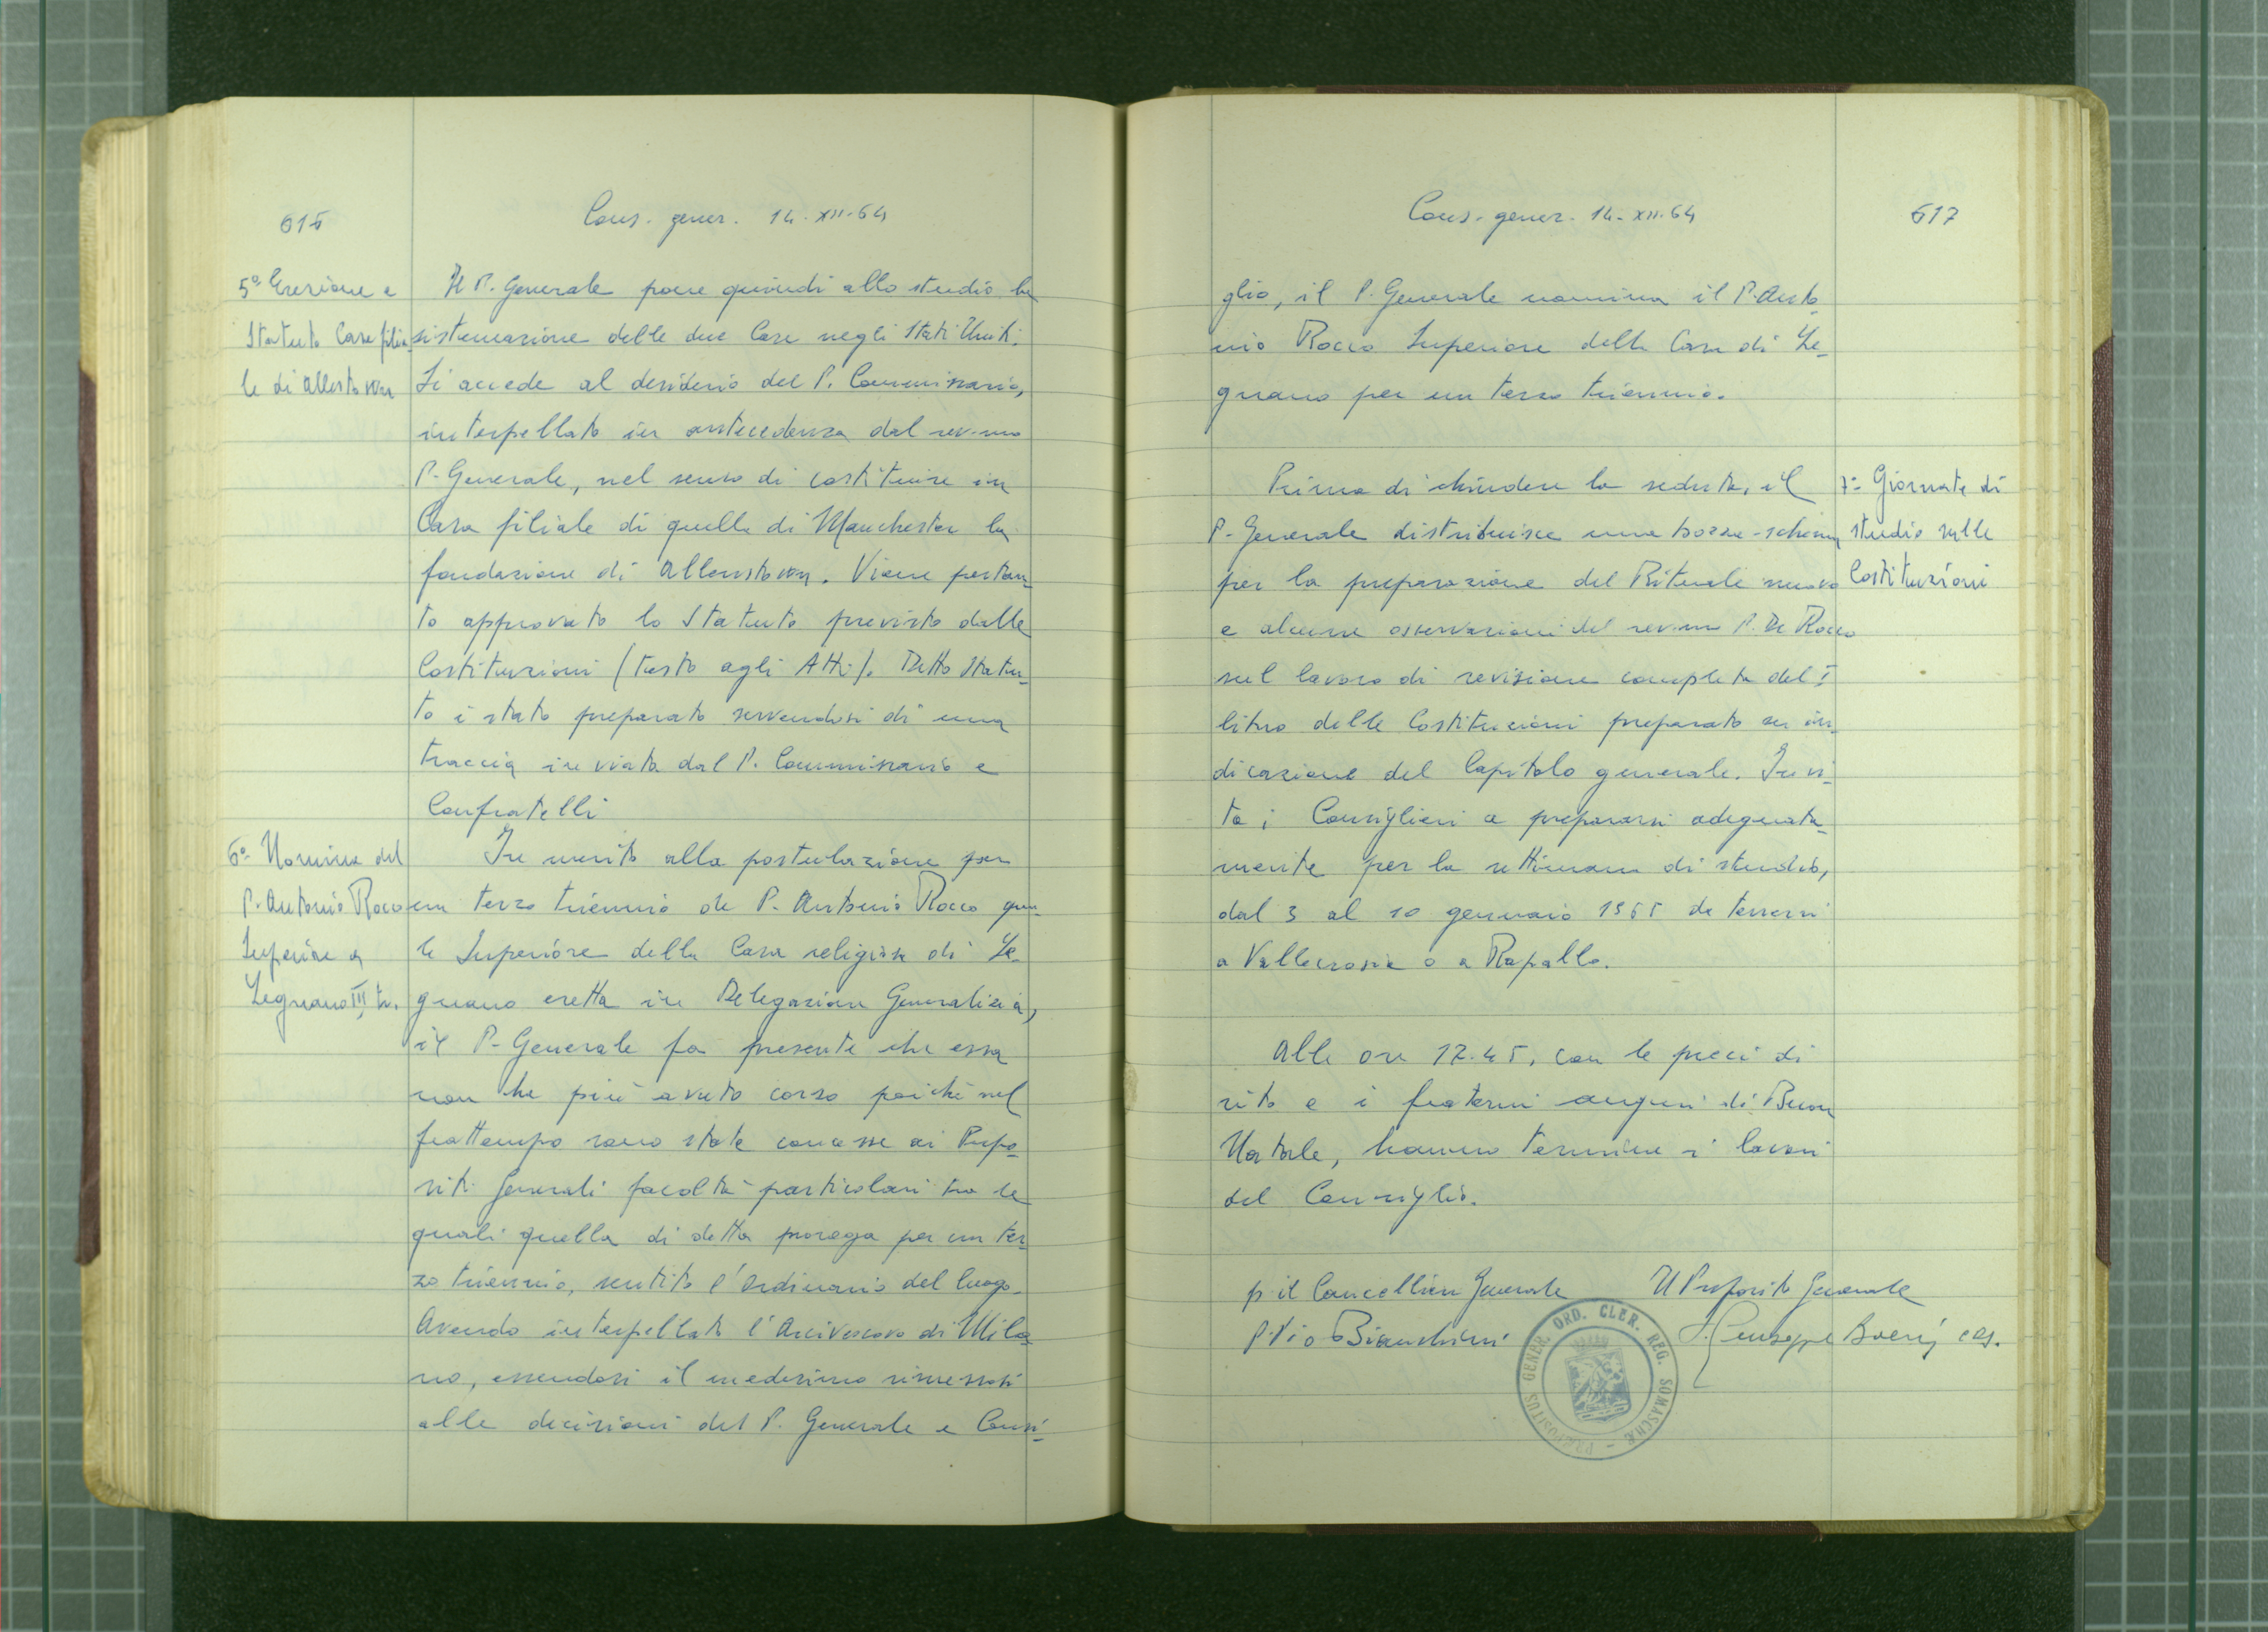 616
Cons. gener. 14-XII-64
5º Erezione e
Statuto Casa filia
le di Allenstown
Il P. Generale pone quindi allo studio la
sistemazione delle due Case negli Stati Uniti.
Si accede al desiderio del P. Commissario,
interpellato in antecedenza dal rev.mo
P. Generale, nel senso di costituire in
Casa filiale di quella di Manchester la
fondazione di Allenstown. Viene pertan-
to approvato lo Statuto previsto dalle
Costituzioni (testo agli Atti). Detto Statu-
to è stato preparato servendosi di una
traccia inviata dal P. Commissario e
Confratelli
6º- Nomina del
P. Antonio Rocco
Superiore a
Legnano III tr.
In merito alla postulazione per
un terzo triennio de P. Antonio Rocco qua-
le Superiore della Casa religiosa di Le-
gnano eretta in Delegazione Generalizia,
il P. Generale fa presente che essa
non ha più avuto corso poichè nel
frattempo sono state concesse ai Prepo-
siti Generali facoltà particolari tra le
quali quella di detta proroga per un ter-
zo triennio, sentito l'Ordinario del luogo.
Avendo interpellato l'Arcivescovo di Mila-
no, essendosi il medesimo rimessosi
alle decisioni del P. Generale e Consi-
Cons. gener. 14-XII-64
617
glio, il P. Generale nomina il P. Anto-
nio Rocco Superiore della Casa di Le-
gnano per un terzo triennio.
Prima di chiudere la seduta, il
P. Generale distribuisce una bozza-schema
per la preparazione del Rituale nuovo
e alcune osservazioni del rev.mo P. De Rocco
sul lavoro di revisione completa del I
libro delle Costituzioni preparato su in-
dicazione del Capitolo generale. Invi-
ta i Consiglieri a prepararsi adeguata-
mente per la settimana di studio,
dal 3 al 10 gennaio 1965 da tenersi
a Vallecrosia o a Rapallo.
7º- Giornate di
studio sulle
Costituzioni
Alle ore 12.45, con le preci di
rito e i fraterni auguri di Buon
Natale, hanno termine i lavori
del Consiglio.
p. il Cancelliere Generale
P. Pio Bianchini
Il Preposito Generale
P. Giuseppe Boeris crs.
PRÆPOSITUS GENER. ORD. CLER. REG. SOMASCHÆ